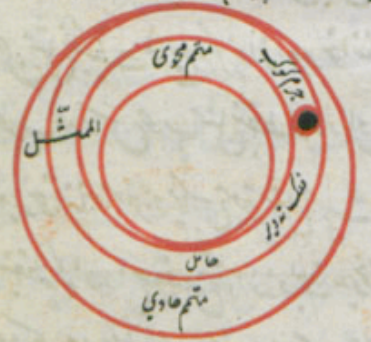 متمم محوی
جرم کوکب
الممثّل
فلک تدویر
حامل
متمم حاوي